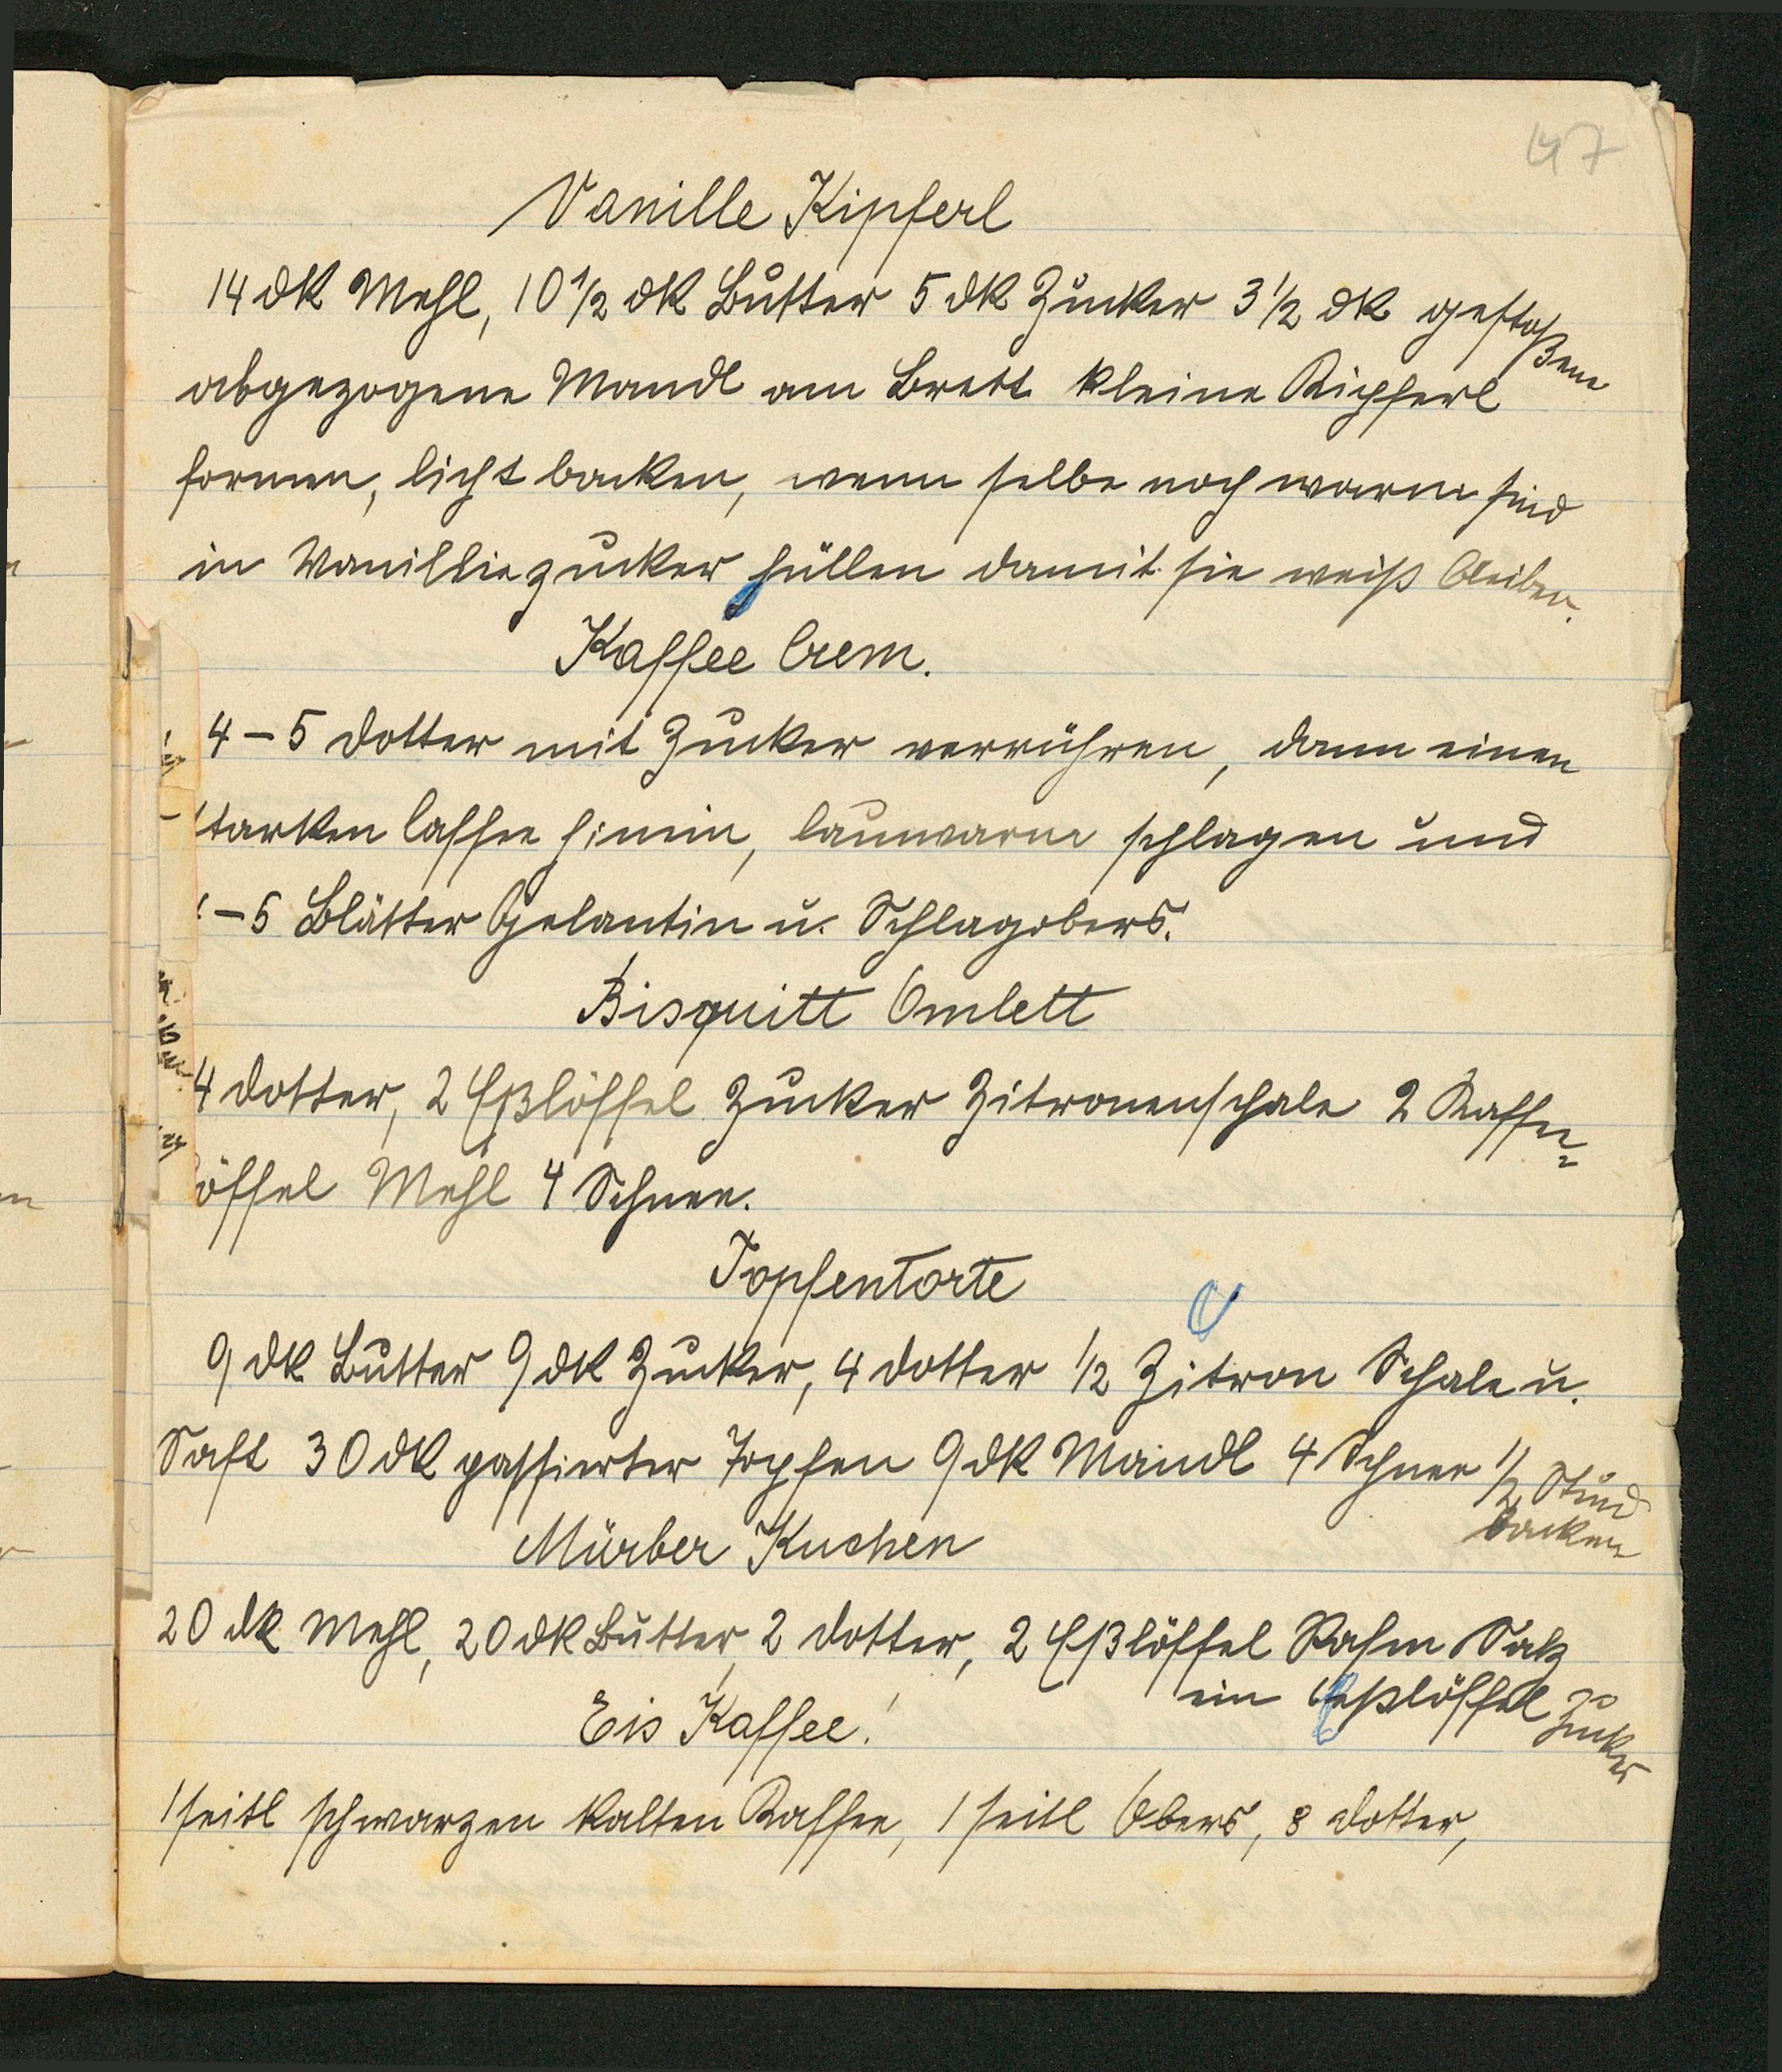 47
Vanille Kipferl
14 dk Mehl, 10 1/2 dk Butter 5 dk Zucker 3 1/2 dk gestoßene
abgezogene Mandl am Brett kleine Kipferl
formen, licht backen, wenn selbe noch warm sind
in Vanilliezucker hüllen damit sie weiß bleiben.
Kaffee Crem.
4-5 Dotter mit Zucker verrühren, dann einen
starken Caffee hinein, lauwarm schlagen und
-5 Blätter Gelantin u. Schlagobers.
Bisquitt Omlett
4 Dotter, 2 Eßlöffel Zucker Zitronenschale 2 Kaffee=
löffel Mehl 4 Schnee.
Topfentorte
9 dk Butter 9 dk Zucker, 4 Dotter 1/2 Zitron Schale u.
Saft 30 dk passierter Topfen 9 dk Mandl 4 Schnee 1/2 Stund
backen
Mürber Kuchen
20 dk Mehl, 20 dk Butter, 2 Dotter, 2 Eßlöffel Rahm Salz
ein Eßlöffel Zucker
Eis Kaffee!
1 Seitl schwarzen kalten Kaffee, 1 Seitl Obers, 8 Dotter,